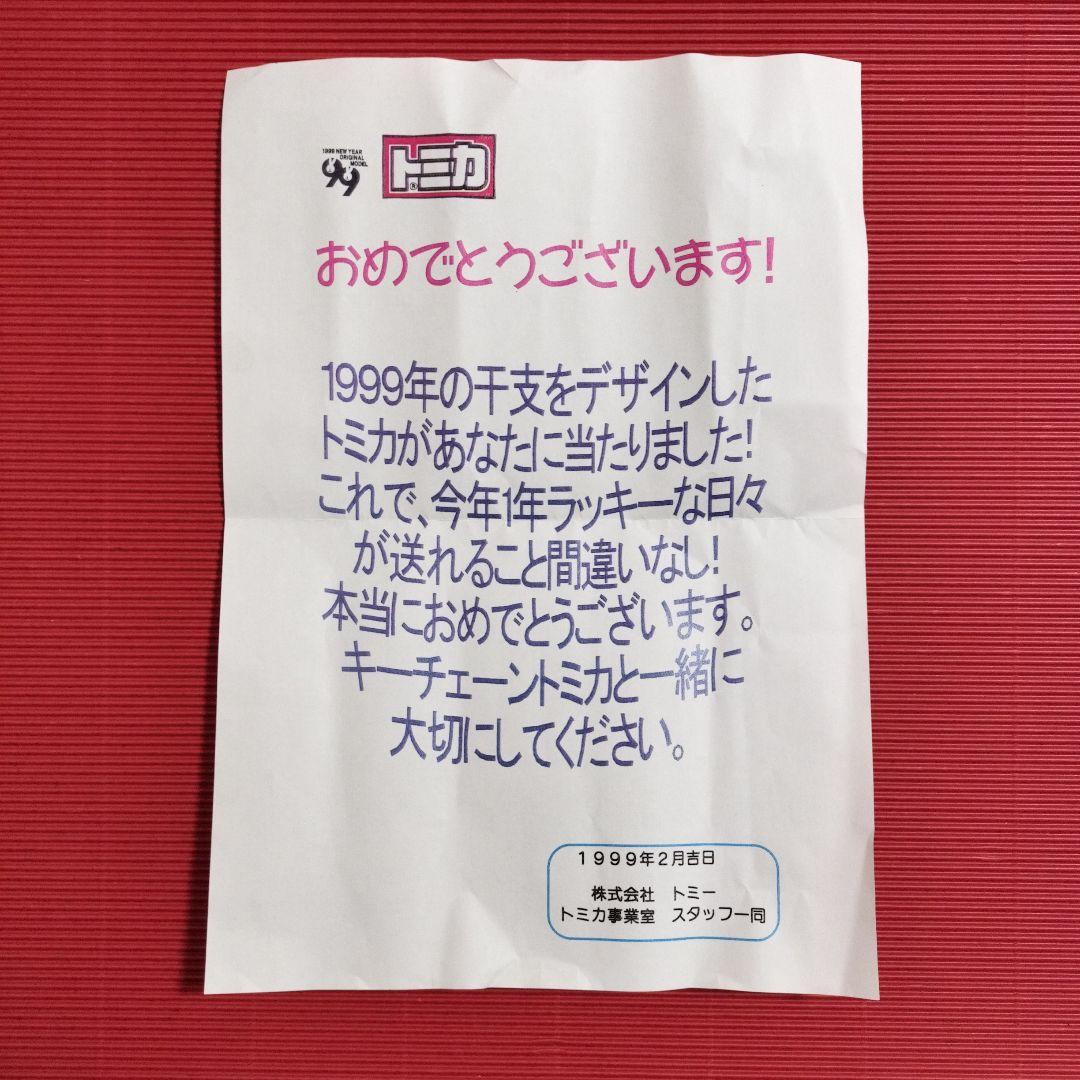 1999 NEW YEAR
ORIGINAL
MODEL
99
トミカ®
おめでとうございます!
1999年の干支をデザインした
トミカがあなたに当たりました!
これで、今年1年ラッキーな日々
が送れること間違いなし!
本当におめでとうございます。
キーチェーントミカと一緒に
大切にしてください。
1999年2月吉日
株式会社 トミー
トミカ事業室 スタッフ一同